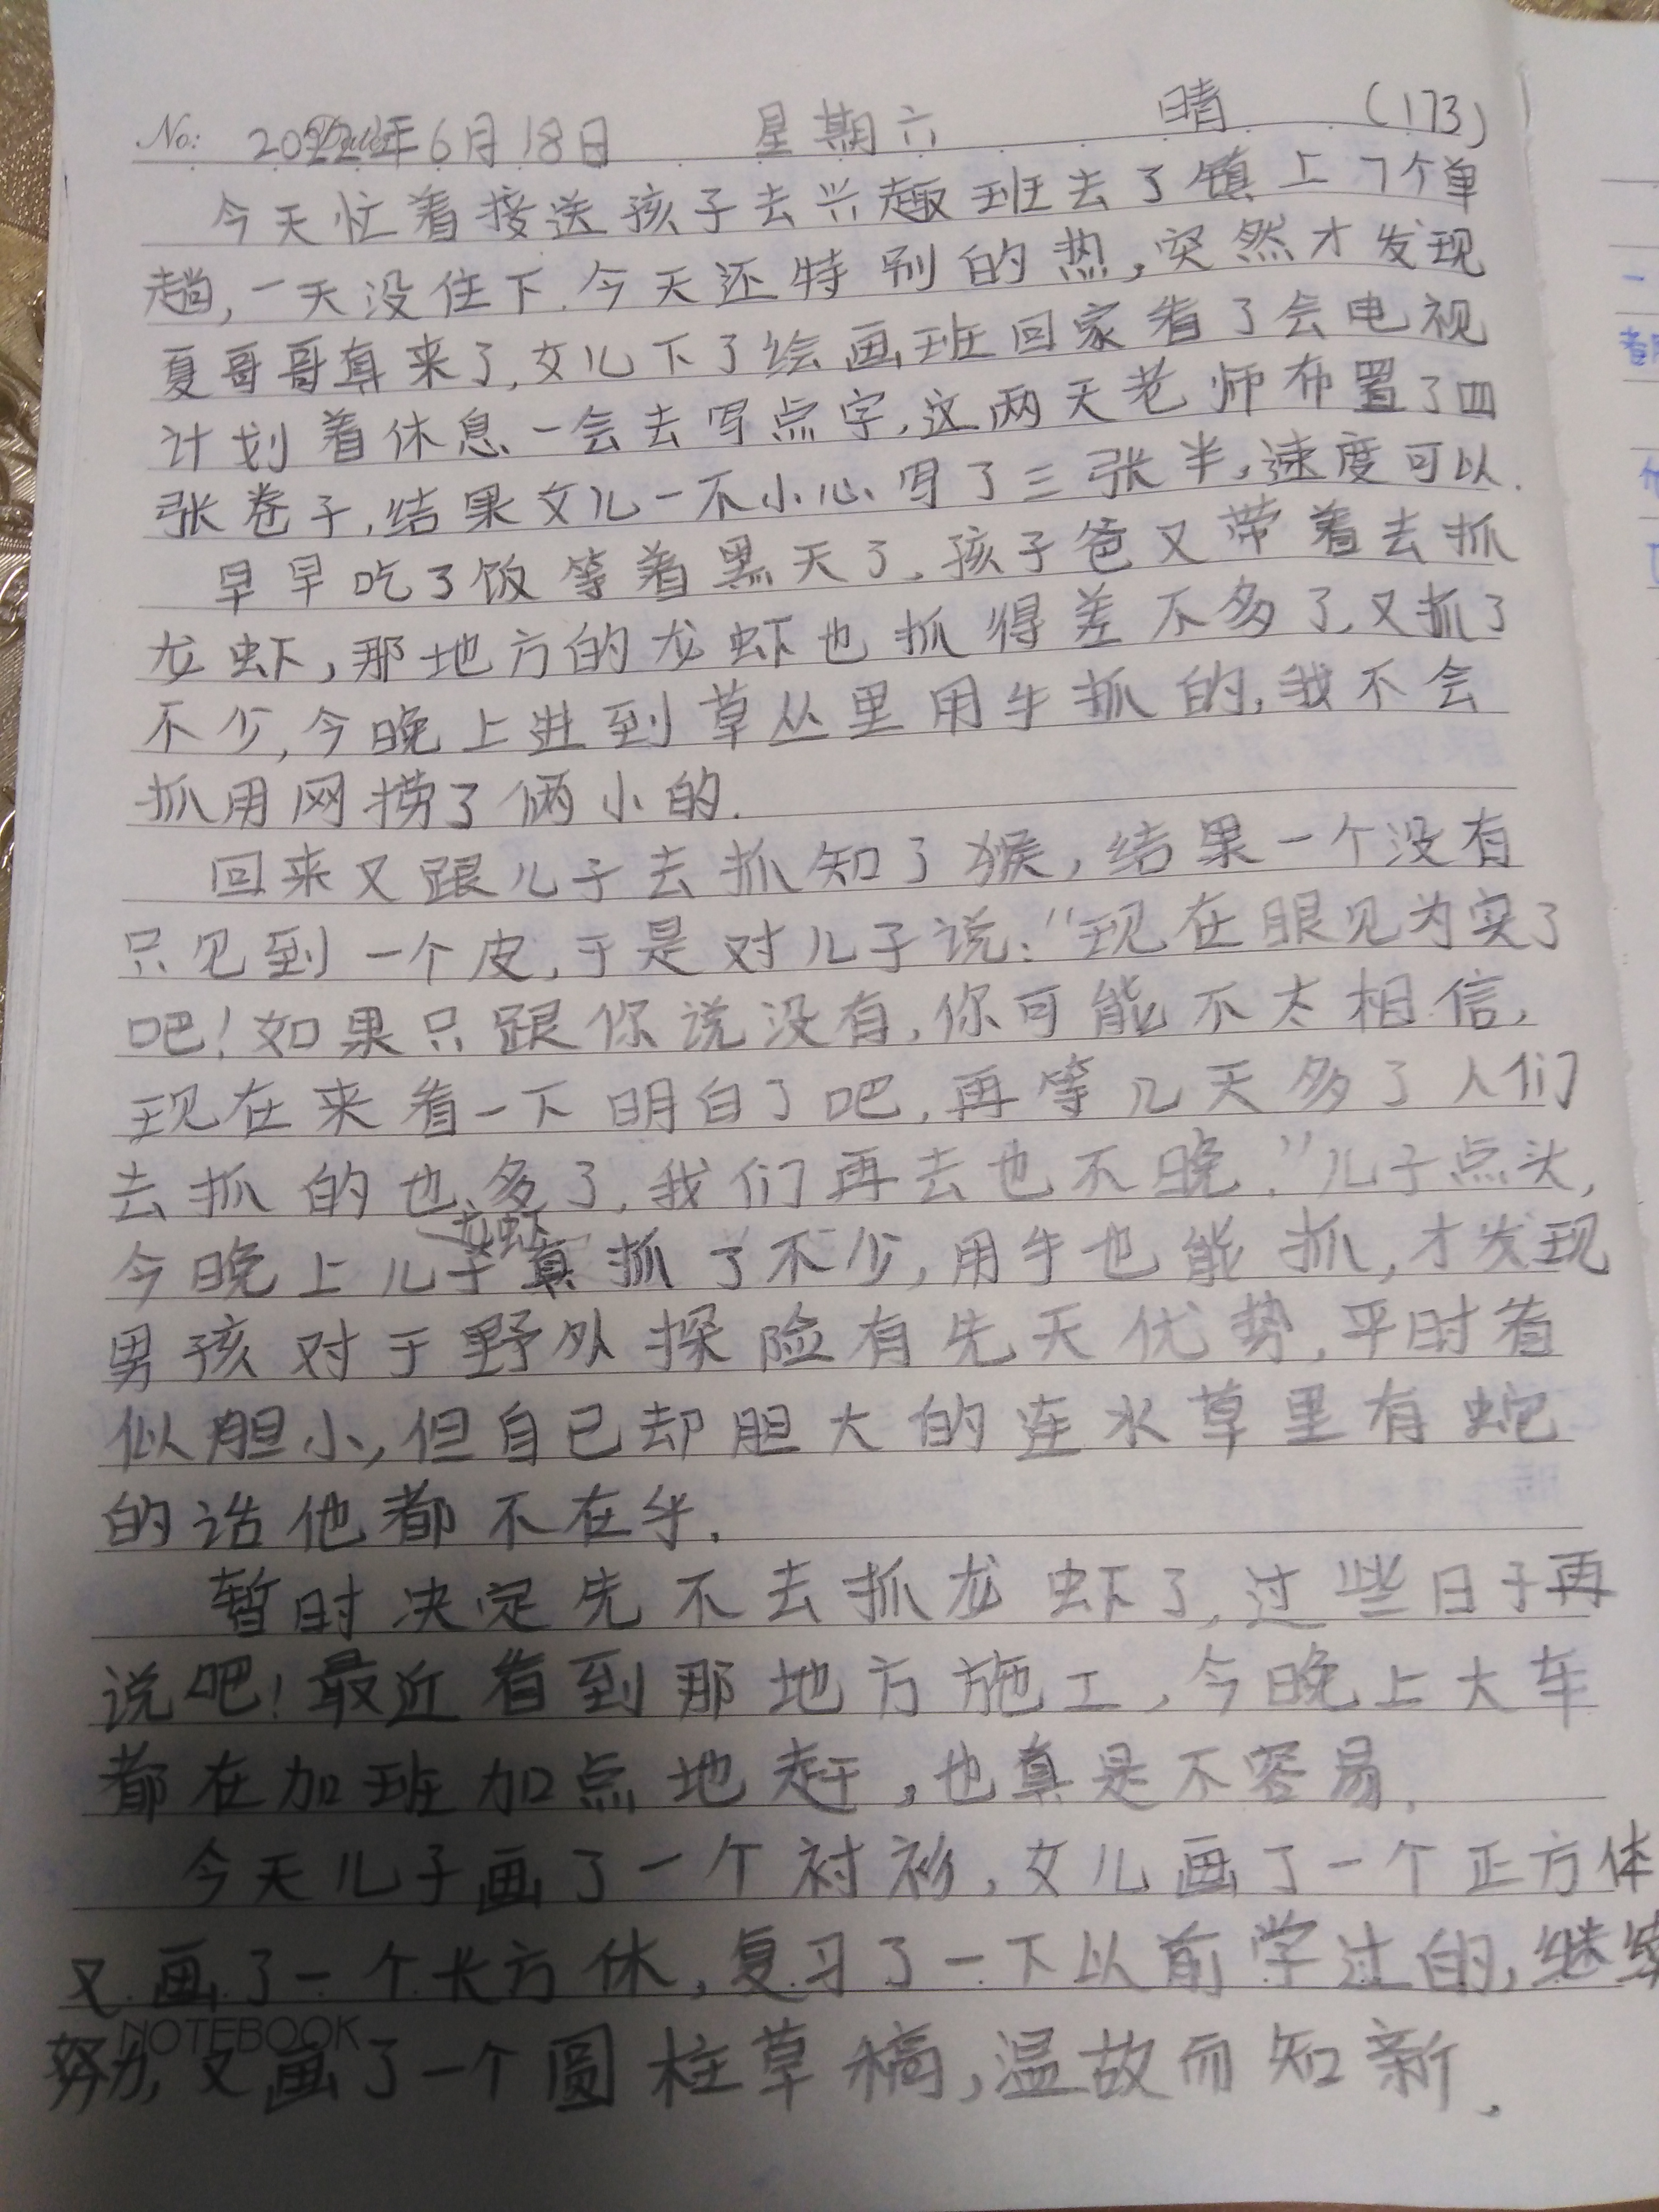 No: 2022年6月18日 星期六 晴 (173)
今天忙着接送孩子去兴趣班去了镇上7个单
趟,一天没住下.今天还特别的热,突然才发现
夏哥哥真来了,女儿下了绘画班回家看了会电视
计划着休息一会去写点字,这两天老师布置了四
张卷子,结果女儿一不小心写了三张半,速度可以.
早早吃了饭等着黑天了,孩子爸又带着去抓
龙虾,那地方的龙虾也抓得差不多了,又抓了
不少,今晚上进到草丛里用手抓的,我不会
抓用网捞了俩小的.
回来又跟儿子去抓知了猴,结果一个没有
只见到一个皮,于是对儿子说:“现在眼见为实了
吧!如果只跟你说没有,你可能不太相信,
现在来看一下明白了吧,再等几天多了人们
去抓的也多了,我们再去也不晚.”儿子点头,
龙虾
今晚上儿子真抓了不少,用手也能抓,才发现
男孩对于野外探险有先天优势,平时看
似胆小,但自己却胆大的连水草里有蛇
的话他都不在乎.
暂时决定先不去抓龙虾了,过些日子再
说吧!最近看到那地方施工,今晚上大车
都在加班加点地赶,也真是不容易.
今天儿子画了一个衬衫,女儿画了一个正方体
又画了一个长方体,复习了一下以前学过的,继续
NOTEBOOK
努力,又画了一个圆柱草稿,温故而知新.